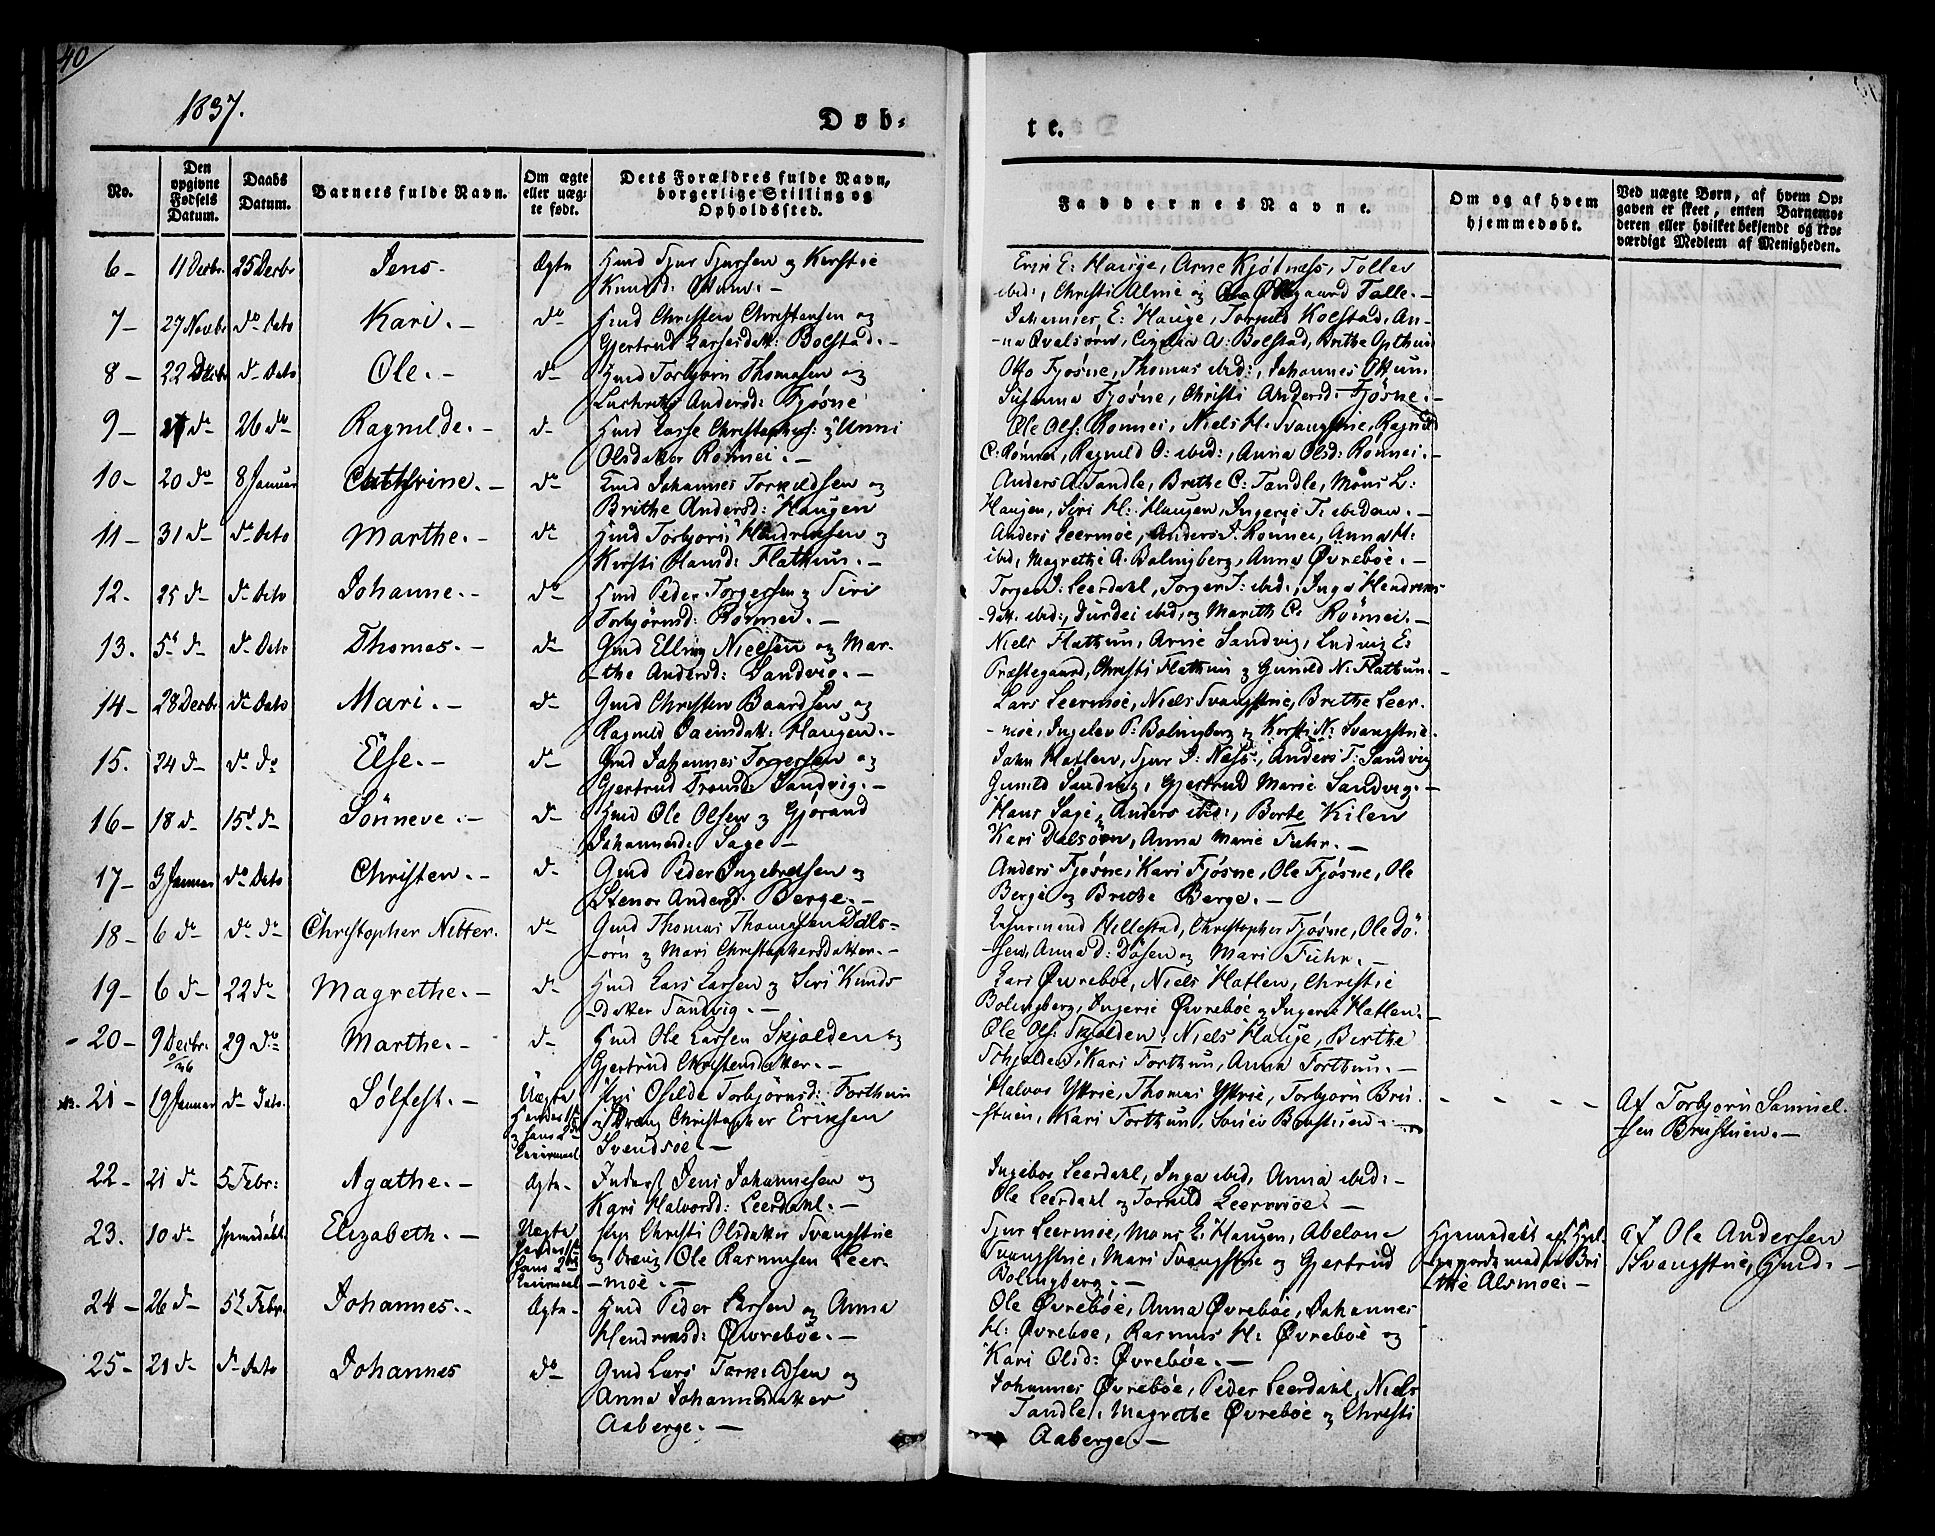 40
1837.
Døb-
te.
No.
Den opgivne Fødsels Datum.
Daabs Datum.
Barnets fulde Navn.
Om ægte eller uæg-
te født.
Dets Forældres fulde Navn,
borgerlige Stilling og
Opholdssted.
Faddernes Navne.
Om og af hvem
hjemmedøbt.
Ved uægte Børn, af hvem Op-
gaven er skeet, enten Barnemo-
deren eller hvilket bekjendt og tro-
værdigt Medlem af Menigheden.
6- 11 Decbr. 25 Decbr Jens. Ægte Hmd Sjur Sjursen og Kirstie
Knudsd:
Erik E: Hauge, Arne Kjøtnæss, Tollev
ibid:, Christi Alme og Talle.-
7- 27 Novbr do Dato Kari.- do Hmd Christen Christensen og
Gjertrud Larsesdatt: Bolstad.-
Johannes E: Hauge, Torkild Kolstad, An-
-na Qvalsørn, A: Bolstad, Brithe
8- 22 Decbr do Dato Ole.- do Hmd Torbjørn Thomasen og
Andersd: Fjøsne
Otto Fjøsne, Thomas ibid:, Johannes Ottum
Susanna Fjøsne, Christi Andersd: Fjøsne.-
9- 27 do 26 do Ragnilde.- do Hmd Lasse Christophers: og Unni
Olsdatter Rønnei.-
Ole Ols: Rønnei, Niels H: Svangstrie, Ragnild
C: Rønnei, Ragnild O: ibid:, Anna Olsd: Rønnei.-
10- 20 do 8 Januar Cathrine.- do Gmd Johannes Torkildsen og
Brithe Andersd: Haugen
Anders A. Tandle, Brithe C: Tandle, Mons L:
Haugen, Siri H: Haugen, Ingerie T: ibidem.-
11- 31 do do Dato Marthe.- do Hmd Torbjørn Hendriksen og
Kirsti Hansd: Flathun.-
Anders Leermoe, Anders J. Rønnei, Anna H:
ibid, Magrethe A. Bolingberg, Anna Øvrebøe.-
12. 25 do do Dato Johanne.- do Hmd Peder Torgersen og Siri
Torbjørnsd: Rønnei.-
Torger J: Leerdahl, Torger T: ibid:, Inga Hendriks
datt: ibid:, Durdei ibid, og Marith C: Rønnei.-
13. 5te do do Dato Thomas.- do Gmd Elling Nielsen og Mar-
-the Andersd: Sandvig.-
Niels Flathun, Arne Sandvig, Ludvig E:
Præstegaard, Christi Flathun og Gunild N: Flathun.-
14- 28 Decbr do Dato Mari.- do Gmd Christen Baardsen og
Ragnild datt: Haugen.-
Lars Leermoe, Niels Svangstrie, Brithe Leer-
-moe, Ingelev P: Bolingberg og Kirsti N: Svangstrie.
15. 24 do do do Else.- do Gmd Johannes Torgersen og
Gjertrud Tronsd: Sandvig.-
John Hatlen, Sjur J: Næss:, Anders T: Sandvig
Gunild Sandvig, Gjertrud Marie Sandvig.-
16- 18 do 15de do Sønneve.- do Hmd Ole Olsen og Gjørand
Johannesd: Sage-
Hans Sage, Anders ibid:, Berte Kilen
Kari Dalsøren, Anna Marie Fuhr.-
17- 3 Januar do Dato Christen.- do Gmd Peder Ingebretsen og
Stenor Andersd: Berge.-
Anders Fjøsne, Kari Fjøsne, Ole Fjøsne, Ole
Berge og Brithe Berge.-
18- 6 do do do Christopher Nitter. do Gmd Thomas Thomesen Dals-
-ørn og Mari Christophersdatter.-
Hillestad, Christopher Fjøsne, Ole Dö-
-sen, Anna d: Døsen og Mari Fuhr.-
19- 6 do 22 do Magrethe.- do Hmd Lars Larsen og Siri Knuds-
-datter Sandvig.-
Lars Øvrebøe, Niels Hatlen, Christie
Bolingberg, Ingerie Øvrebøe og Ingerie Hatlen.-
-20- 9 Decbr. 29 do Marthe.- do Hmd Ole Larsen Skjolden og
Gjertrud Christensdatter.-
Ole Ols: Skjolden, Niels Hauge, Birthe
Schjolden, Kari Forthun, Anna Forthun.-
21- 19 Januar do Dato. Sølfest.- Uægte
Pige Osilda Torbjörnsd: Forthun
og Dreng Christopher Eriksen
Svendsøe.-
Halvor Yttrie, Thomas Yttrie, Torbjørn Bru-
-stuen, Kari Forthun,
Af Torbjørn Samuel-
-sen Brustuen.-
22- 21 do 5 Febr: Agathe.- Ægte.- Inderst Jens Johannesen og
Kari Halvorsd: Leerdahl.-
Ingeboe Leerdahl, Inga ibid, Anna ibid:-
Ole Leerdahl og Tornild Leermoe.-
23. 10 do hjemmedøbt Elizabeth.- Uægte
Pige Christi Olsdatter Svangstrie
og Dreng Ole Rasmusen Leer-
-moe.-
Sjur Leermoe, Mons L: Haugen, Abelone
Svangstrie, Mari Svangstrie og Gjertrud
Bolingberg.-
Hjemmedøbt af
Bri-
-the Alsmoe.-
af Ole Andersen
Svangstrie, Gmd.-
24- 26 do 5te Febr. Johannes.- Ægte.- Hmd Peder Larsen og Anna
Hendriksd: Øvrebøe.-
Ole Øvrebøe, Anna Øvrebøe, Johannes
H: Øvrebøe, Rasmus H: Øvrebøe og
Kari Olsd: Øvrebøe.-
25- 21 do do Dato Johannes do Gmd Lars Torkildsen og
Anna Johannesdatter
Aaberge.-
Johannes Øvrebøe, Peder Leerdahl, Niels
Tandle, Magrethe Øvrebøe og Christi
Aaberge.-